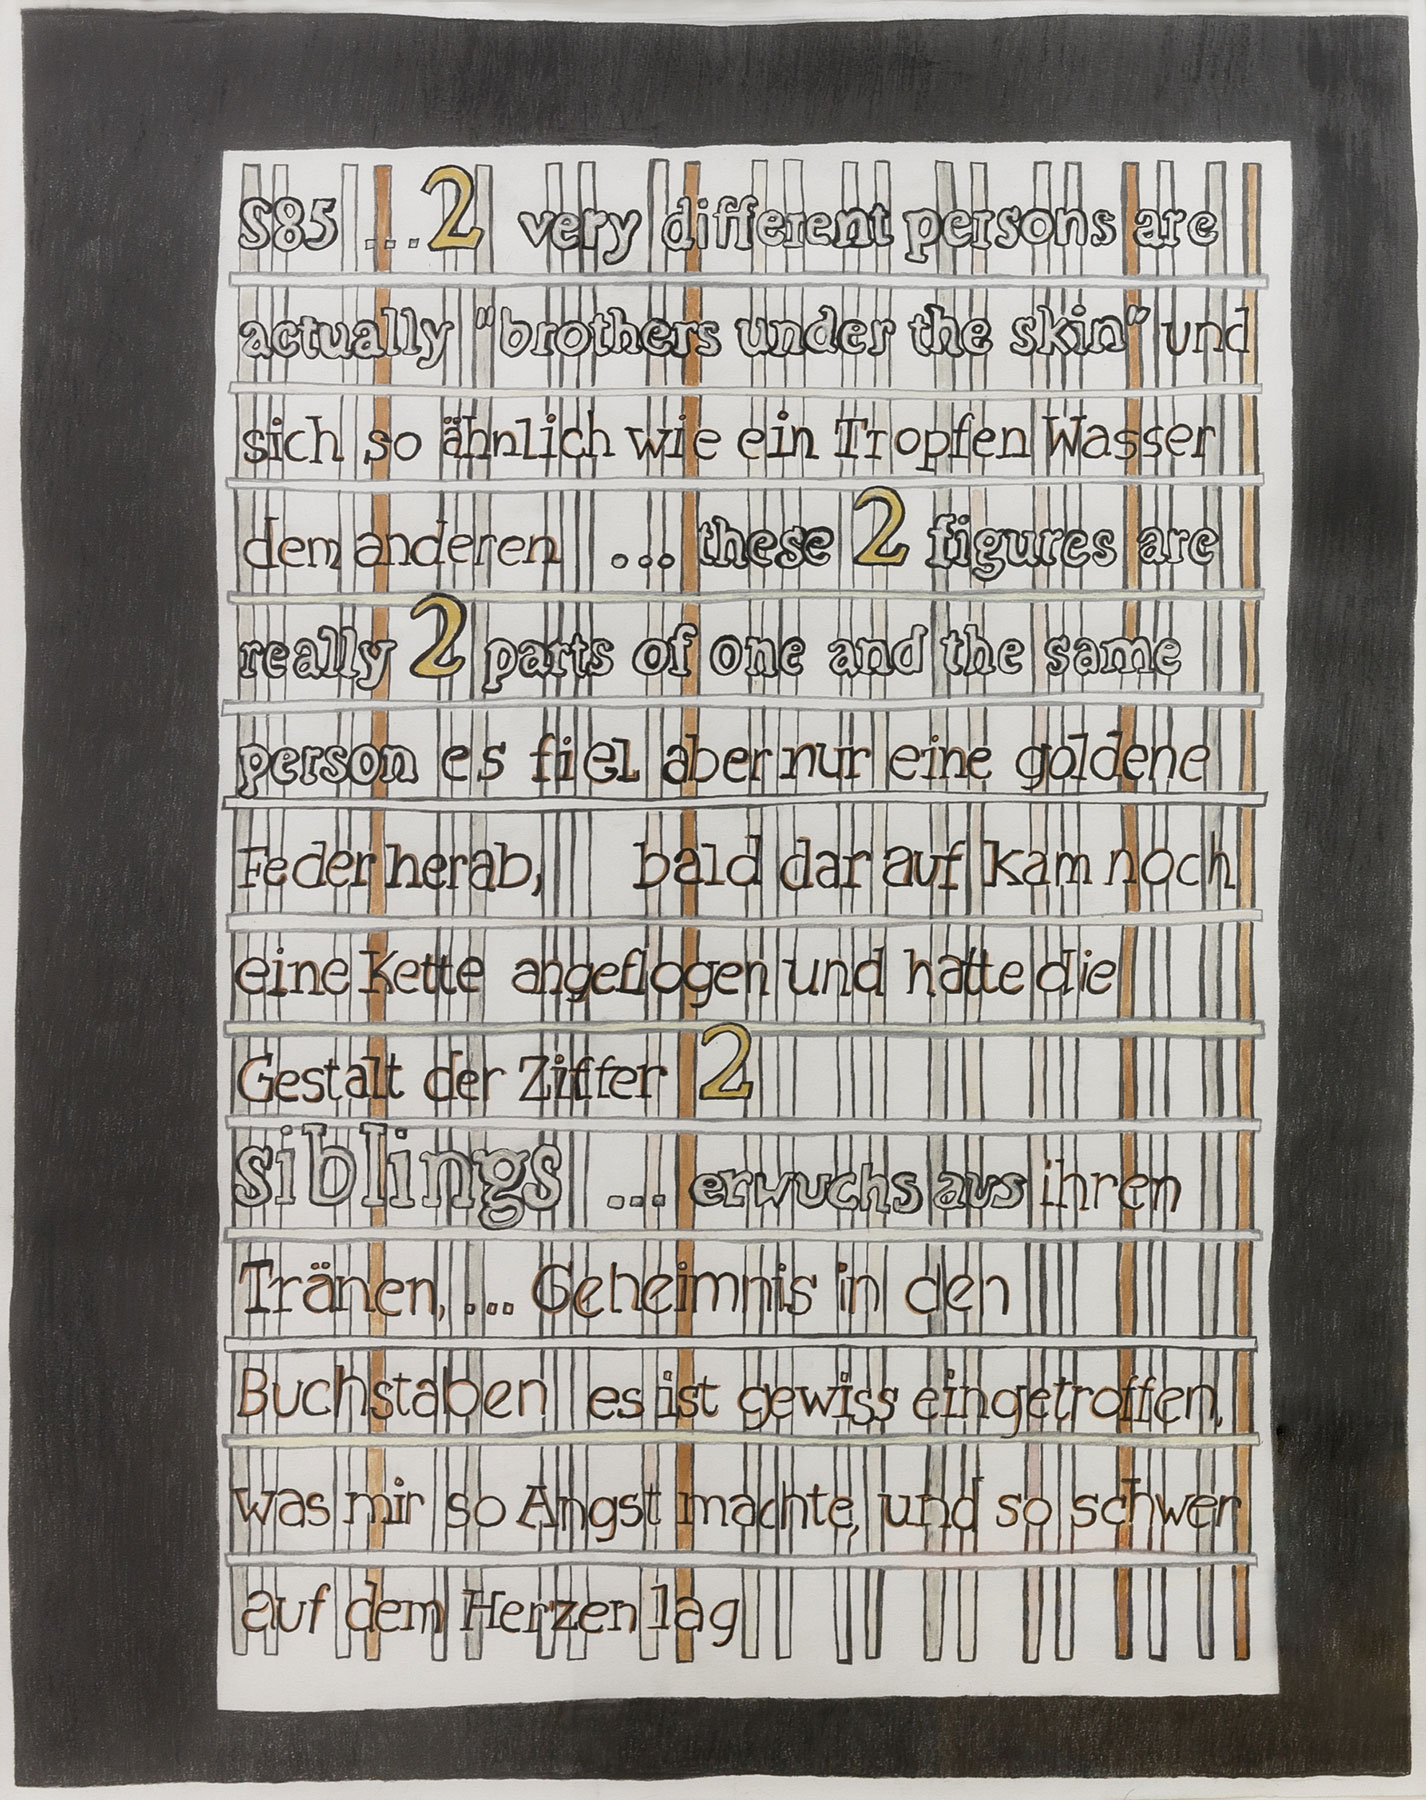 S85 ...2 very different persons are
actually "brothers under the skin" und
sich so ähnlich wie ein Tropfen Wasser
dem anderen ... these 2 figures are
really 2 parts of one and the same
person es fiel aber nur eine goldene
Feder herab, bald darauf kam noch
eine Kette angeflogen und hatte die
Gestalt der Ziffer 2
siblings ... erwuchs aus ihren
Tränen, ... Geheimnis in den
Buchstaben es ist gewiss eingetroffen,
was mir so Angst machte, und so schwer
auf dem Herzen lag